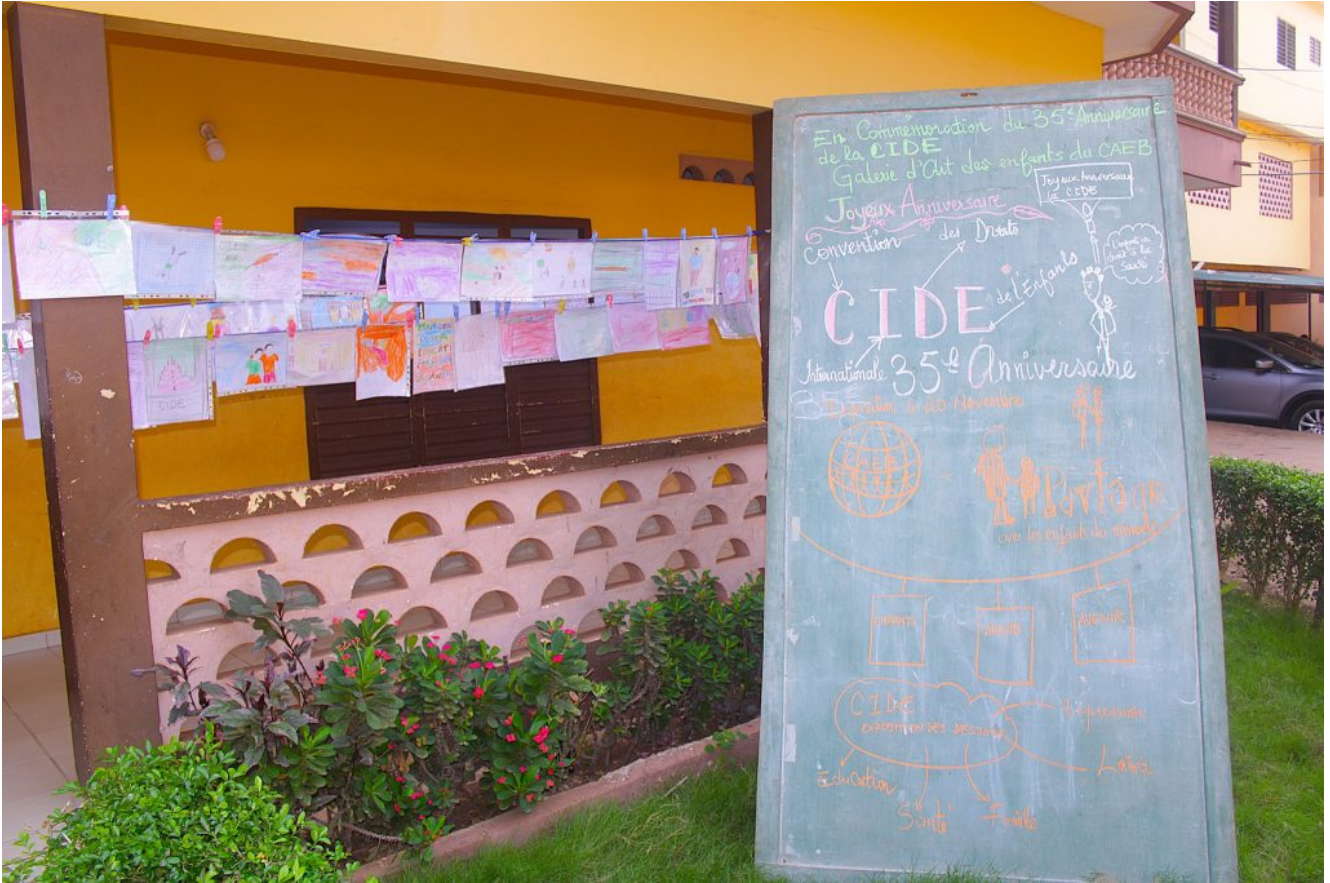 En Commémoration du 35e Anniversaire
de la CIDE
Galerie d'Art des enfants du CAEB
Joyeux Anniversaire
la CIDE
Joyeux Anniversaire
Convention des Droits
droit à la
Santé
CIDE
de l'Enfants
Internationale 35e Anniversaire
35e
le 20 Novembre
CAEB
Partage
avec les enfants du monde
ENFANTS
AVENIR
CIDE
EXPOSITION DES DESSINS
Expression
Loisir
Education
Santé
Famille
CIDE